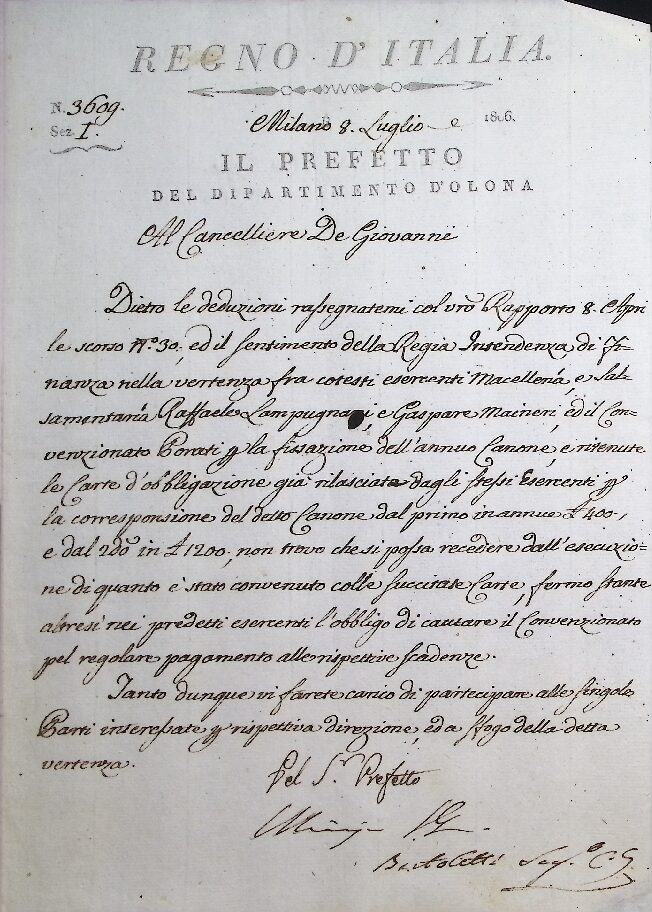 REGNO D'ITALIA.
N. 3609.
Sez. I.
Milano 8. Luglio 1806.
IL PREFETTO
DEL DIPARTIMENTO D'OLONA
Al Cancelliere De Giovanni
Dietro le deduzioni rassegnatemi col vr̃o Rapporto 8. Apri
le scorso N.º 30, ed il sentimento della Regia Intendenza di Fi-
nanza nella vertenza fra cotesti esercenti Macelleria, e Sal-
samentaria Raffaele Lampugnani, e Gaspare Maineri, ed il Con-
venzionato Porati p la fissazione dell'annuo Canone, e ritenute
le Carte d'obbligazione già rilasciate dagli stessi Esercenti p
la corresponsione del detto Canone dal primo in annue £ 400,
e dal 2do in £ 1200, non trovo che si possa recedere dall'esecuzio-
ne di quanto è stato convenuto colle succitate Carte, fermo stante
altresì nei predetti esercenti l'obbligo di cautare il Convenzionato
pel regolare pagamento alle rispettive scadenze.
Tanto dunque vi farete carico di partecipare alle singole
Parti interessate p rispettiva direzione, ed a sfogo della detta
vertenza.
Pel S.r Prefetto
Bertoletti Seg.º